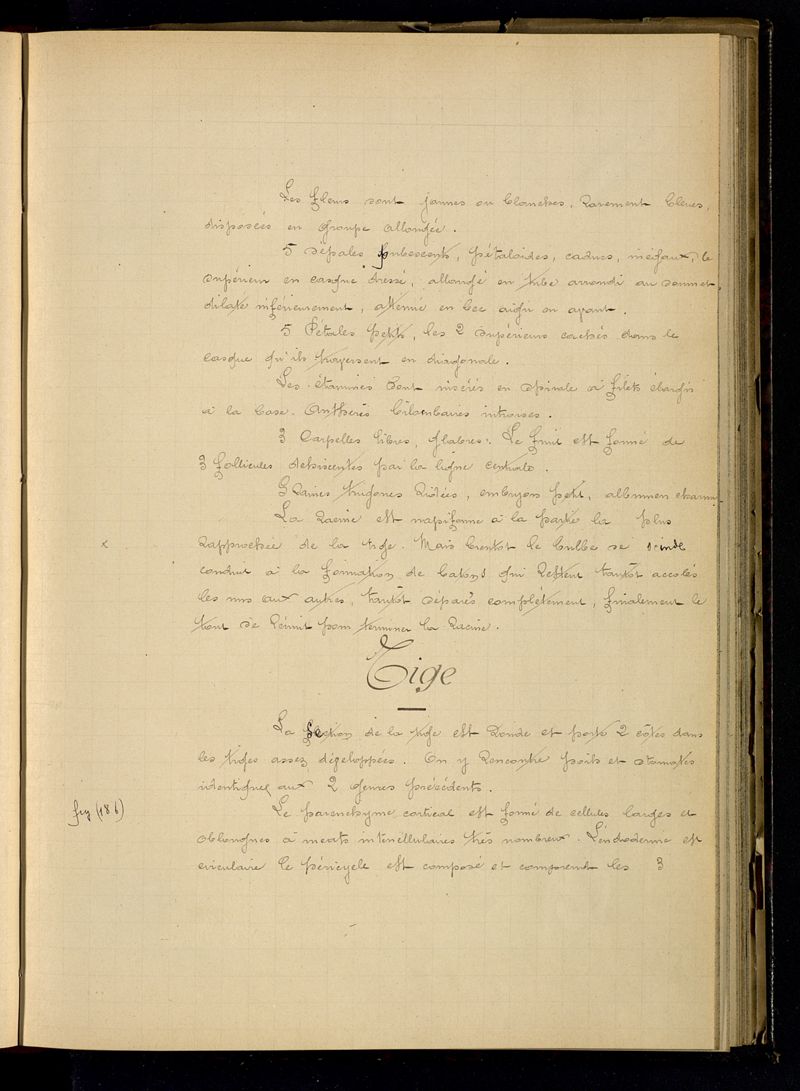 Les fleurs sont jaunes ou blanches, rarement bleues,
disposées en groupe allongée.
5 sépales pubescents, pétaloïdes, caducs, inégaux, le
supérieur en casque dressé, allongé en tube arrondi au sommet
dilaté inférieurement, atténué en bec aigu en avant.
5 Pétales petits, les 2 supérieurs cachés dans le
casque qu'ils traversent en diagonale.
Les étamines sont insérés en spirale à filets élargis
à la base. Anthères introrses.
3 Carpelles libres, glabres. Le fruit est formé de
3 follicules déhiscentes par la ligne centrale.
Graines trigones ridées, embryon petit, albumen charnu
La Racine est napiforme à la partie la plus
x Rapprochée de la tige. Mais bientôt le bulbe se scinde
conduit à la formation de batons qui restent tantôt accolés
les uns aux autres, tantôt séparés complètement, finalement le
tout se réunit pour terminer la Racine.
Tige
La section de la tige est Ronde et porte 2 côtés dans
les tiges assez développées. On y Rencontre poils et stomates
identiques aux 2 genres précédents.
fig (186) Le parenchyme cortical est formé de cellules larges et
oblongues à meats intercellulaires très nombreux. L'endoderme est
circulaire le péricycle est composé et comprend les 3